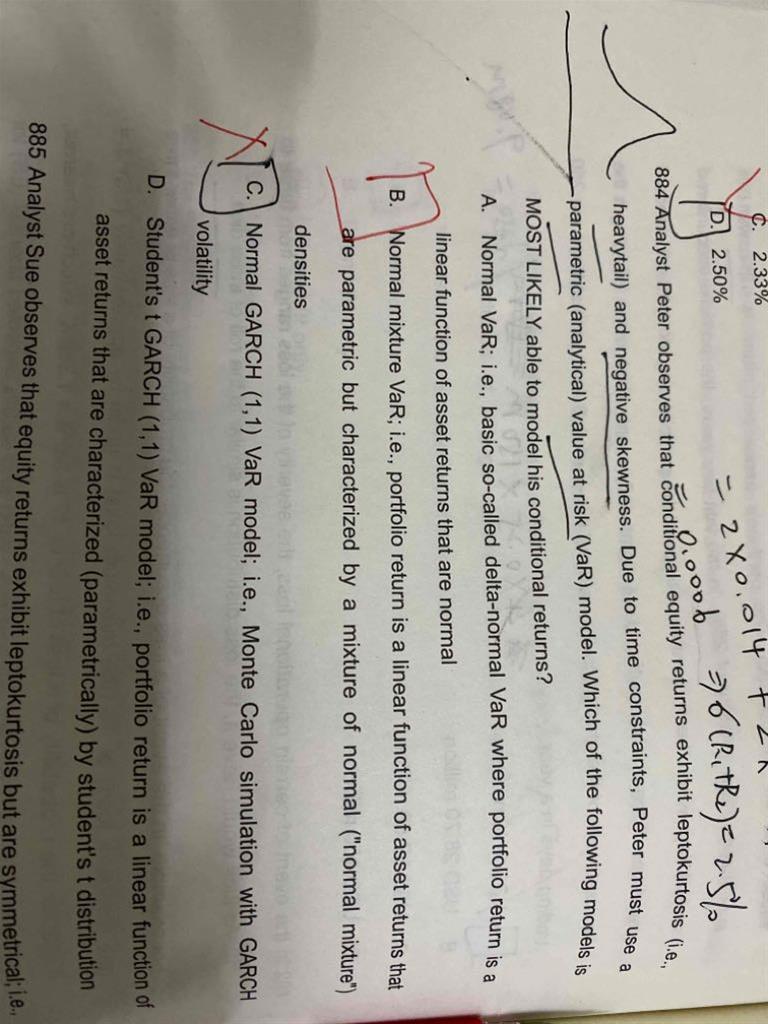 C. 2.33%
D. 2.50%
= 2×0.014 + 2×
= 0.0006 ⇒ б(R₁+R₂)=2.5%
884 Analyst Peter observes that conditional equity returns exhibit leptokurtosis (i.e.,
heavytail) and negative skewness. Due to time constraints, Peter must use a
parametric (analytical) value at risk (VaR) model. Which of the following models is
MOST LIKELY able to model his conditional returns?
A. Normal VaR; i.e., basic so-called delta-normal VaR where portfolio return is a
linear function of asset returns that are normal
B. Normal mixture VaR; i.e., portfolio return is a linear function of asset returns that
are parametric but characterized by a mixture of normal ("normal mixture")
densities
C. Normal GARCH (1,1) VaR model; i.e., Monte Carlo simulation with GARCH
volatility
D. Student's t GARCH (1,1) VaR model; i.e., portfolio return is a linear function of
asset returns that are characterized (parametrically) by student's t distribution
885 Analyst Sue observes that equity returns exhibit leptokurtosis but are symmetrical; i.e.,